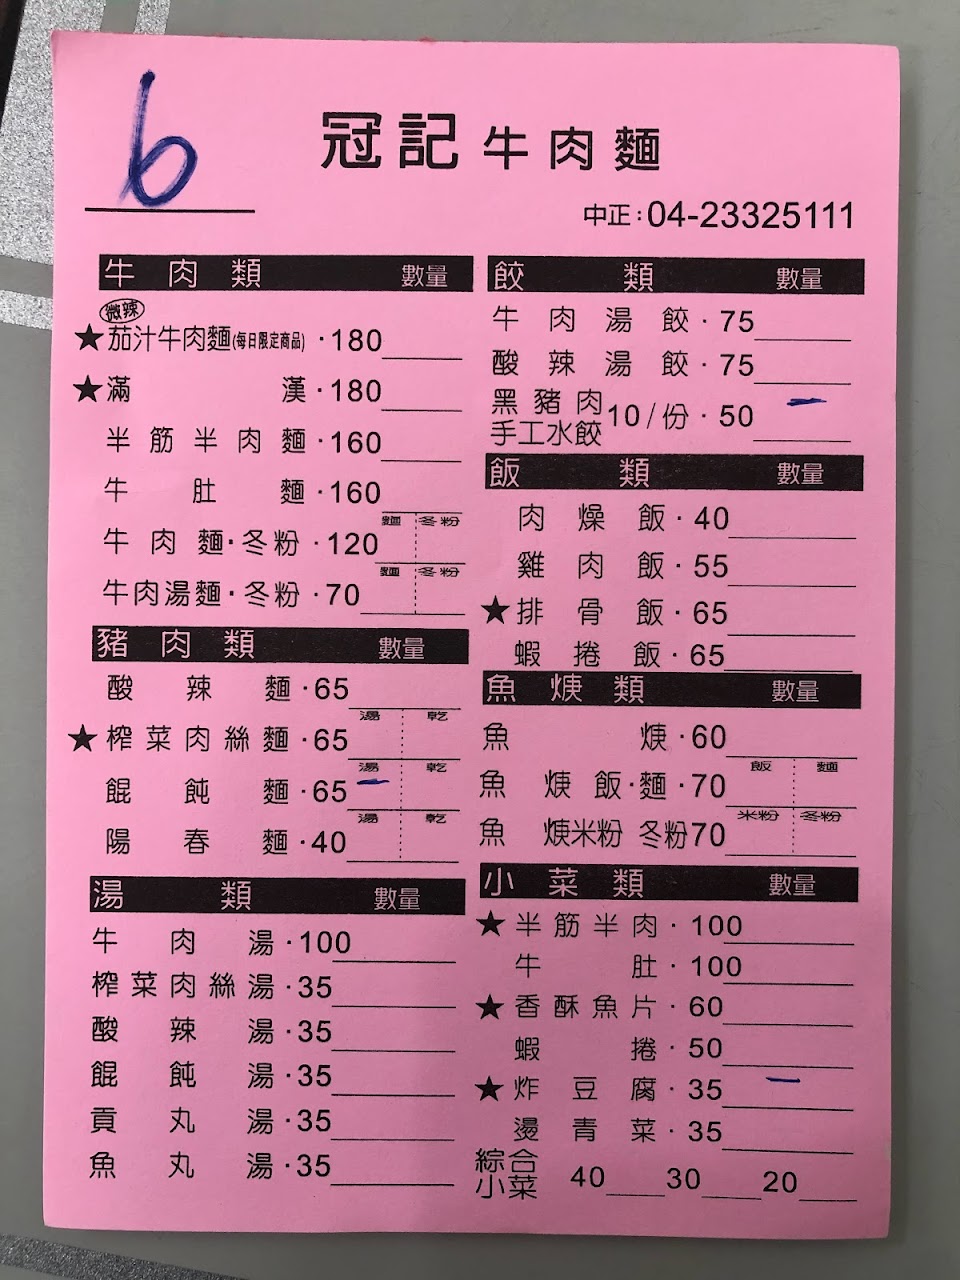 6
冠記牛肉麵
中正:04-23325111
牛肉類 數量
微辣
★茄汁牛肉麵(每日限定商品)·180
★滿漢·180
半筋半肉麵·160
牛肚麵·160
麵 冬粉
牛肉麵·冬粉·120
麵 冬粉
牛肉湯麵·冬粉·70
豬肉類 數量
酸辣麵·65
湯 乾
★榨菜肉絲麵·65
湯 乾
餛飩麵·65 一
湯 乾
陽春麵·40
湯類 數量
牛肉湯·100
榨菜肉絲湯·35
酸辣湯·35
餛飩湯·35
貢丸湯·35
魚丸湯·35
餃類 數量
牛肉湯餃·75
酸辣湯餃·75
黑豬肉
手工水餃10/份·50 一
飯類 數量
肉燥飯·40
雞肉飯·55
★排骨飯·65
蝦捲飯·65
魚焿類 數量
魚焿·60
飯 麵
魚焿飯·麵·70
米粉 冬粉
魚焿米粉 冬粉70
小菜類 數量
★半筋半肉·100
牛肚·100
★香酥魚片·60
蝦捲·50
★炸豆腐·35 一
燙青菜·35
綜合
小菜 40 30 20